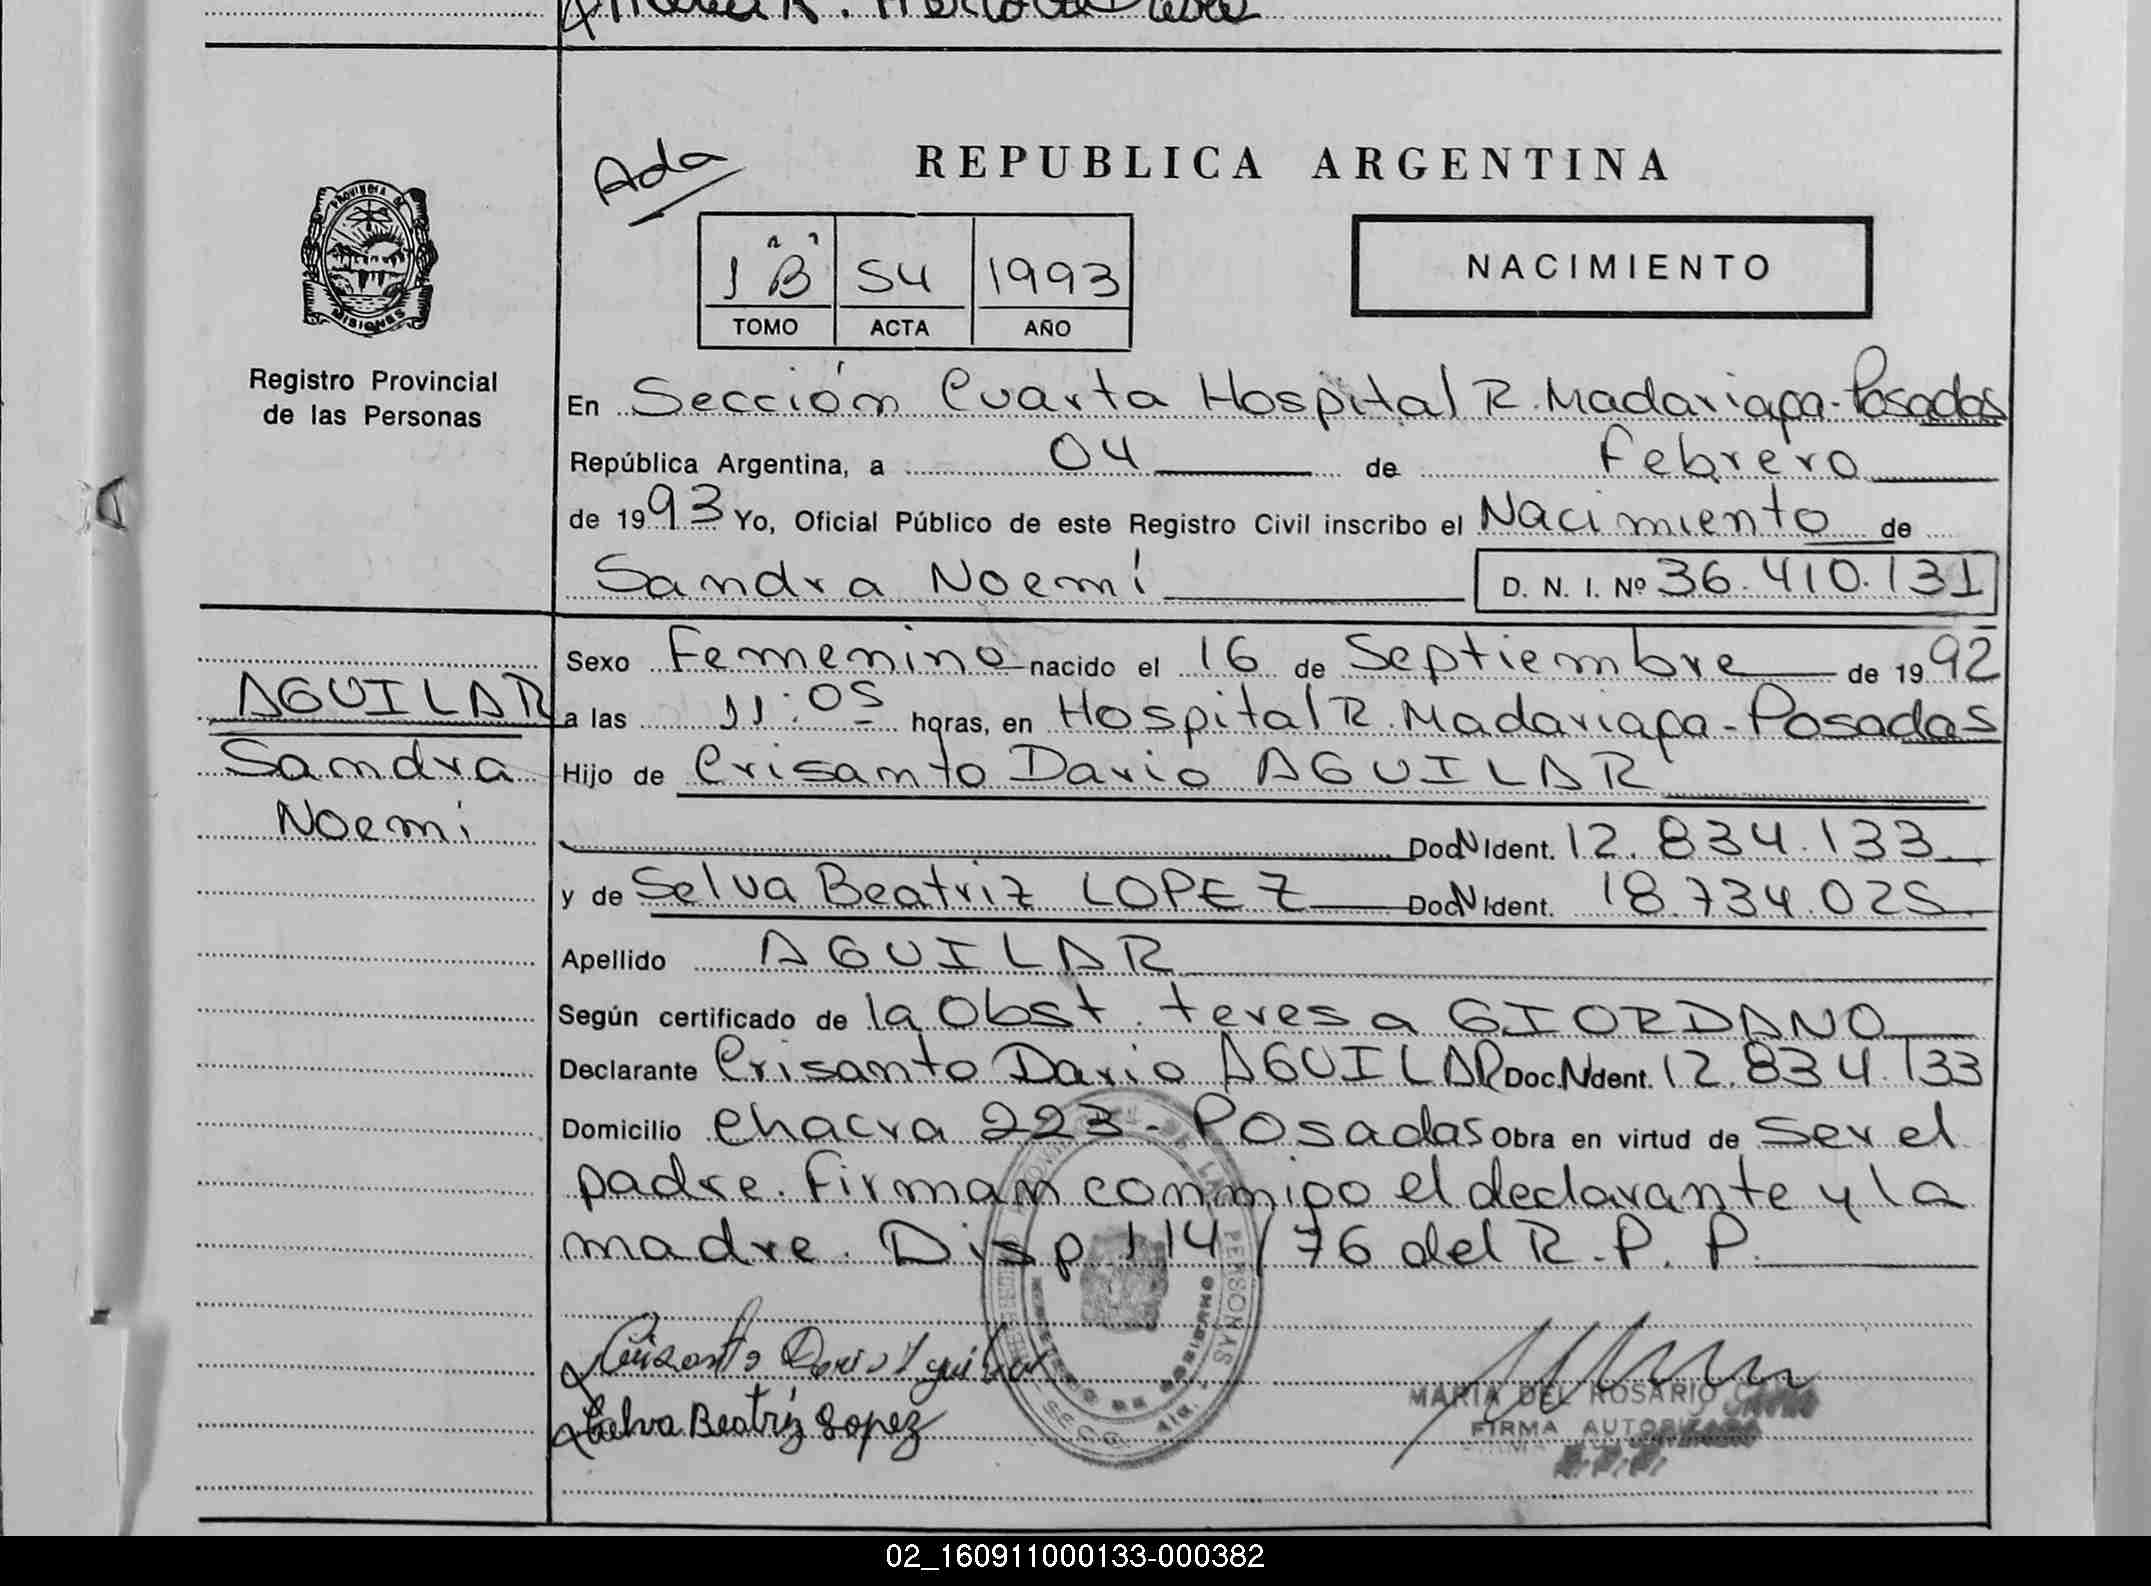 Ada
REPUBLICA ARGENTINA
1 "B" 54 1993
TOMO ACTA AÑO
NACIMIENTO
PROVINCIA DE
MISIONES
Registro Provincial
de las Personas
En Sección Cuarta Hospital R. Madariaga-Posadas
República Argentina, a 04 de Febrero
de 1993 Yo, Oficial Público de este Registro Civil inscribo el Nacimiento de
Sandra Noemí D. N. I. Nº 36.410.131
AGUILAR
Sandra
Noemi
Sexo Femenino nacido el 16 de Septiembre de 1992
a las 11:05 horas, en Hospital R. Madariaga-Posadas
Hijo de Crisanto Dario AGUILAR
Doc N Ident. 12.834.133
y de Selva Beatriz LOPEZ Doc N Ident. 18.734.025
Apellido AGUILAR
Según certificado de la Obst. teresa GIORDANO
Declarante Crisanto Dario AGUILAR Doc. N dent. 12.834.133
Domicilio Chacra 223- Posadas Obra en virtud de Ser el
padre. Firman conmigo el declarante y la
madre. Disp 114/76 del R.P.P.
Crisanto Dario Aguilar
Selva Beatriz Lopez
PERSONAS
MARIA DEL ROSARIO
FIRMA AUTORIZADA
02_160911000133-000382